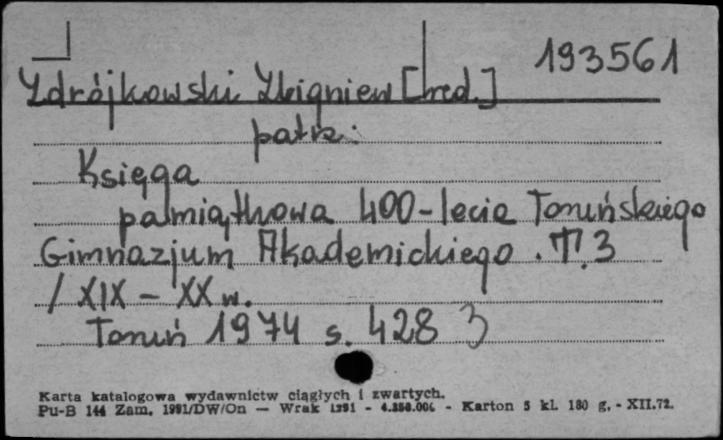 193561
Zdrójkowski Zbigniew [red.]
patrz:
Księga
pamiątkowa 400-lecia Toruńskiego
Gimnazjum Akademickiego. T. 3
/ XIX - XX w.
Toruń 1974 s. 428 3
Karta katalogowa wydawnictw ciągłych i zwartych.
Pu-B 144 Zam. 1991/DW/On — Wrak 1291 - 4.350.000 - Karton 5 kl. 180 g. - XII.72.